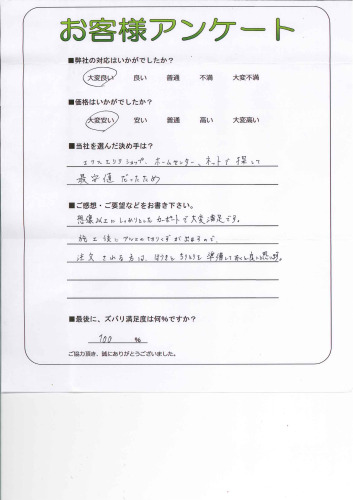 お客様アンケート
■弊社の対応はいかがでしたか?
大変良い 良い 普通 不満 大変不満
■価格はいかがでしたか?
大変安い 安い 普通 高い 大変高い
■当社を選んだ決め手は?
エクステリアショップ、ホームセンター、ネットで探して
最安値だったため
■ご感想・ご要望などをお書き下さい。
想像以上にしっかりとしたカーポートで大変満足です。
施工後にアルミの切りくずが出るので、
注文される方は、ほうきとちりとりを準備しておくと良いと思います。
■最後に、ズバリ満足度は何%ですか?
100 %
ご協力頂き、誠にありがとうございました。